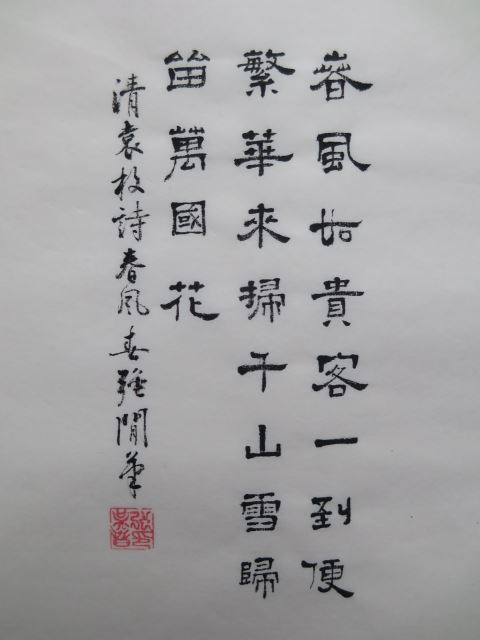 春風如貴客一到便
繁華來掃千山雪歸
留萬國花
清袁枚詩春風春強閒筆